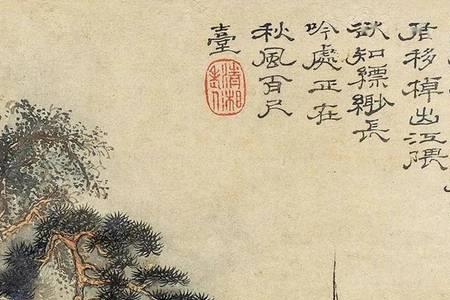 君移棹出江隈
欲知縹緲長
吟處正在
秋風百尺
臺
清湘
老人